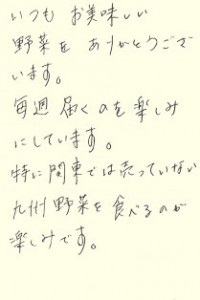 いつも お美味しい
野菜を ありがとうござ
います。
毎週 届くのを楽しみ
にしています。
特に関東では売っていない
九州野菜を食べるのが
楽しみです。